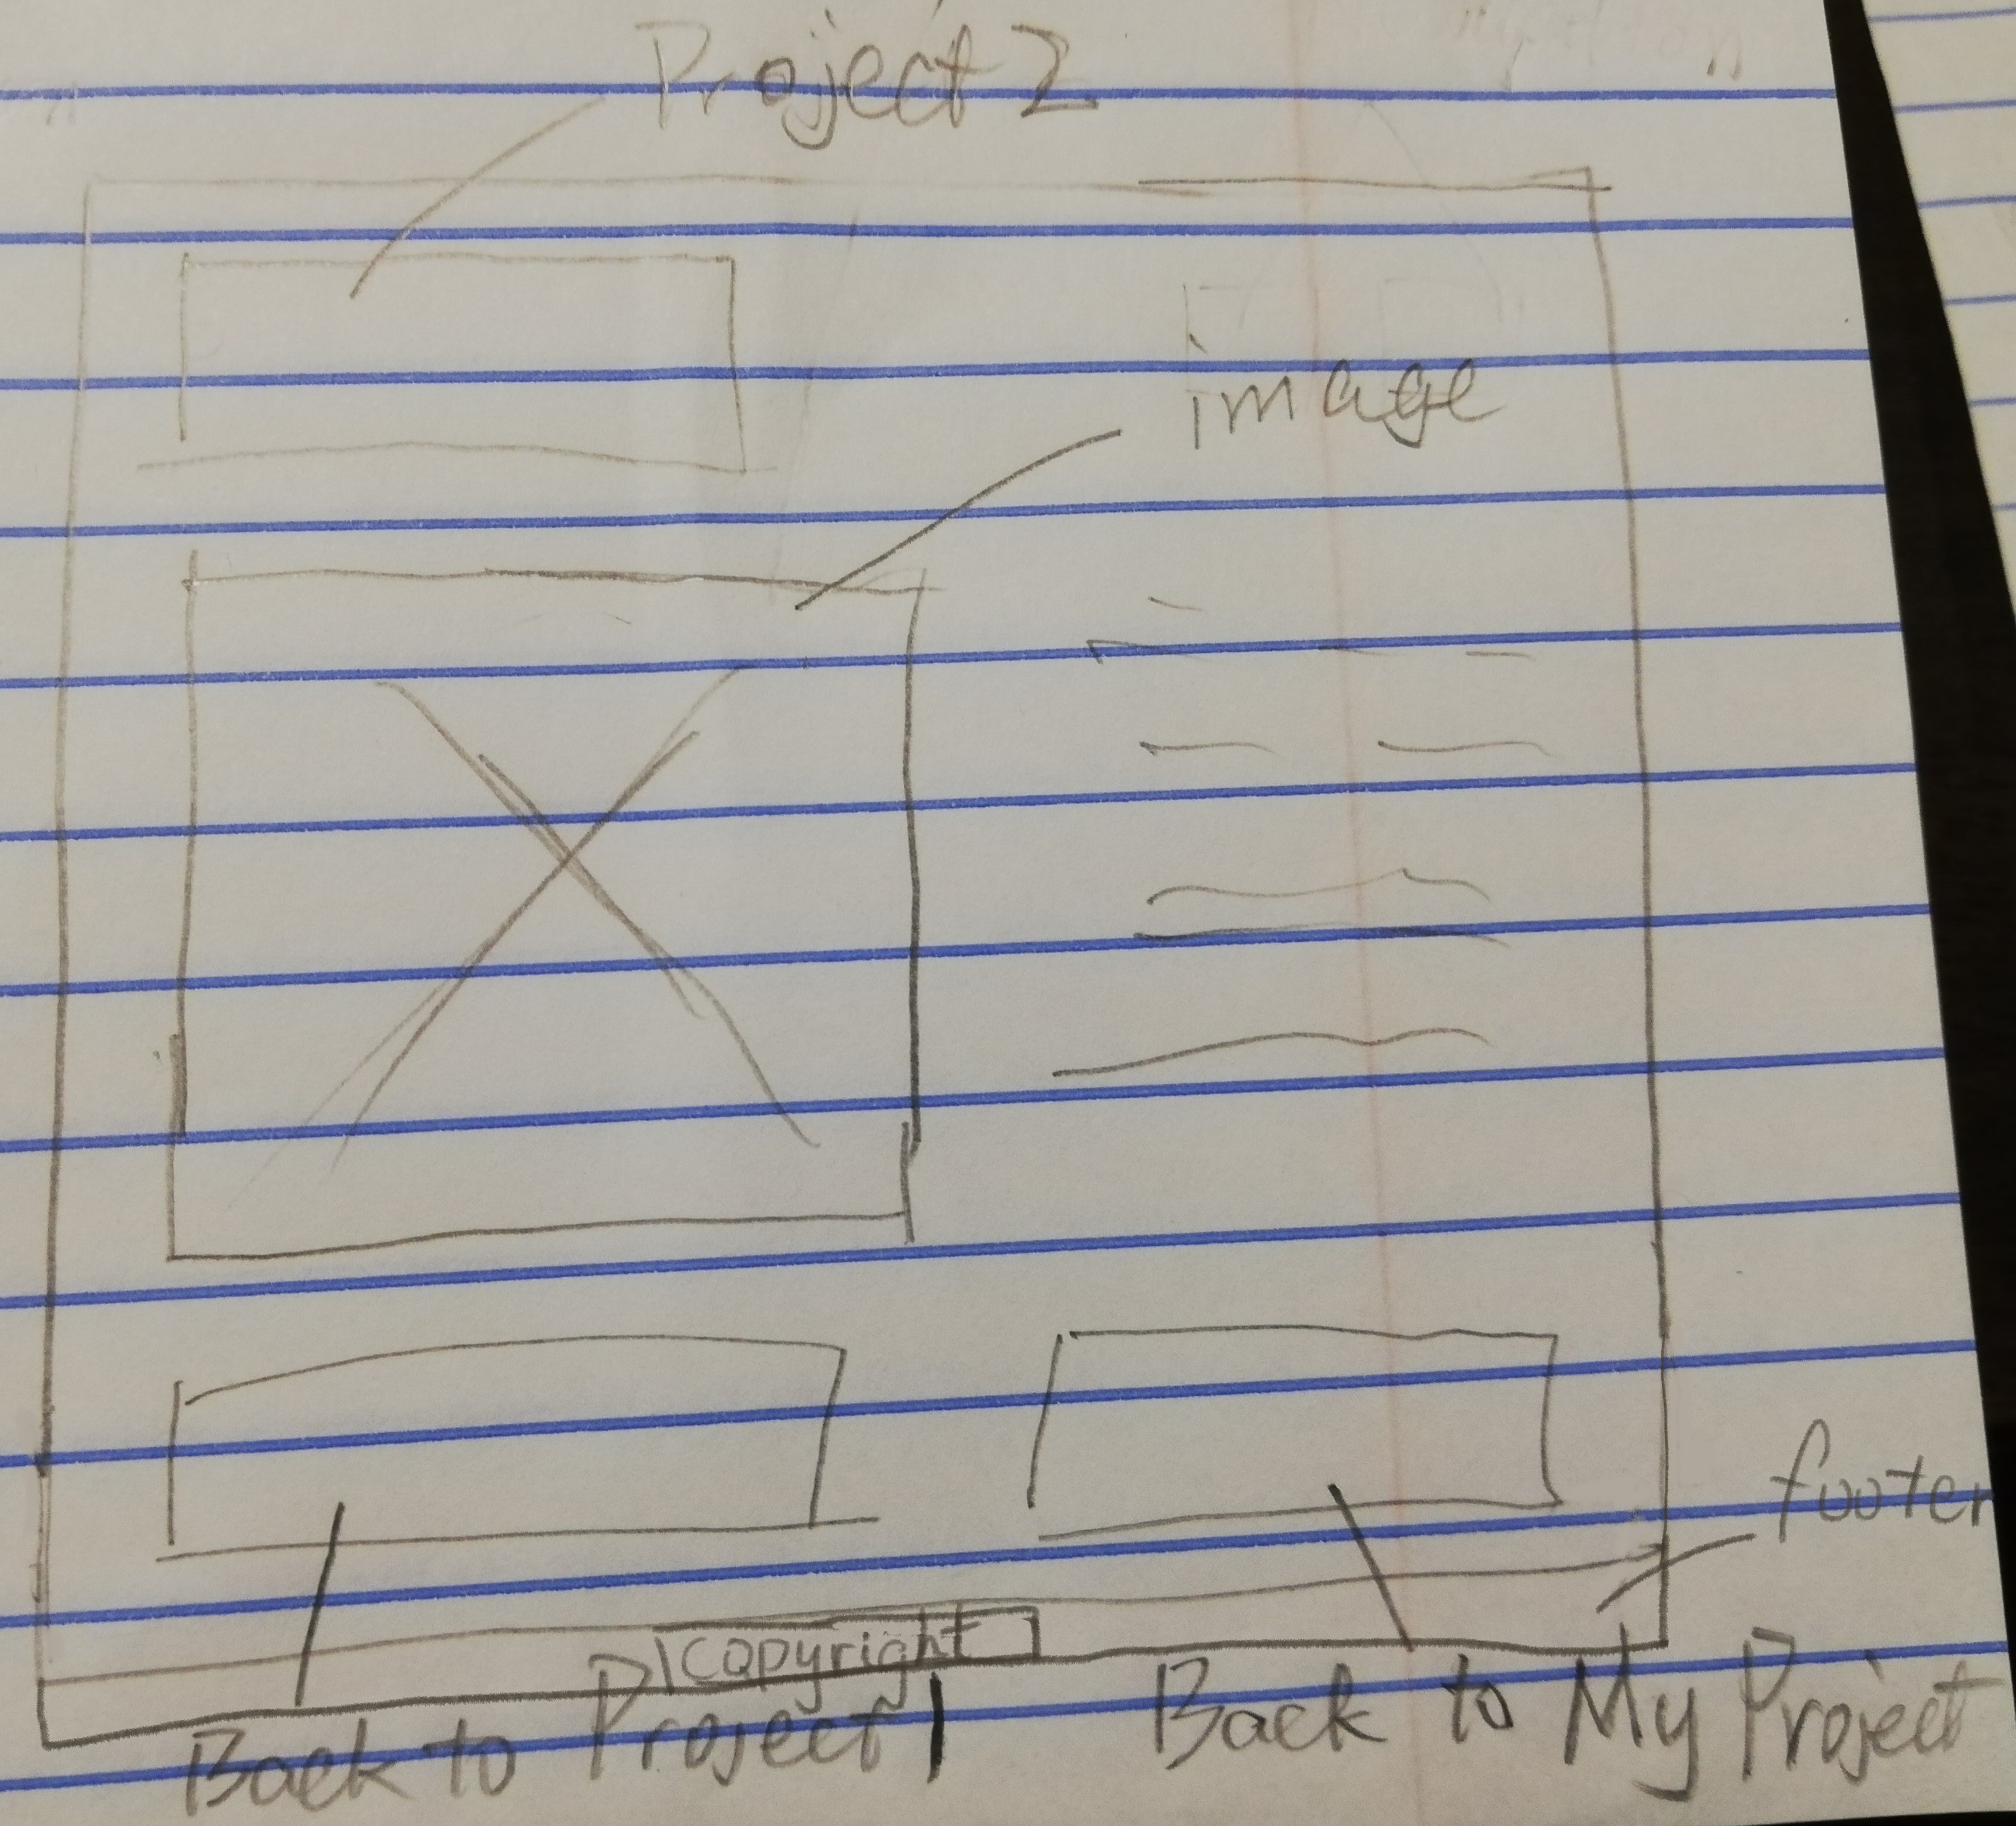 Project 2
image
footer
copyright
Back to Project 1
Back to My Project